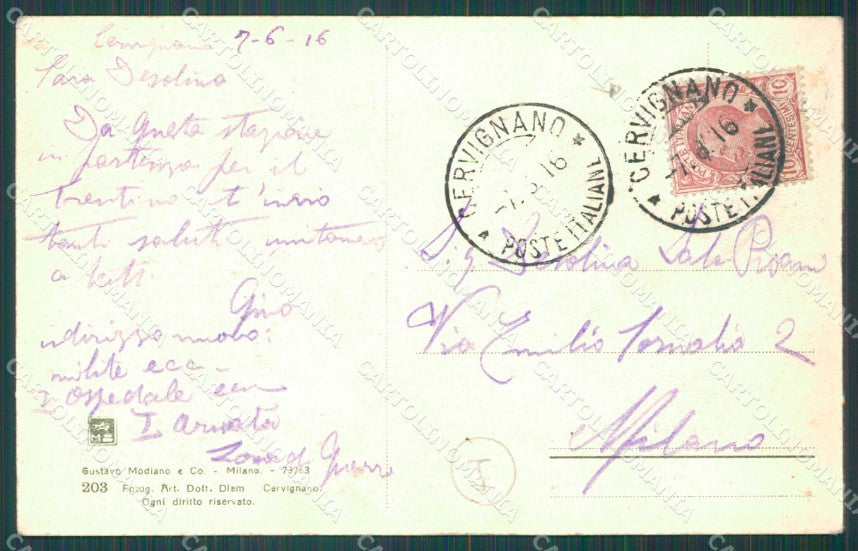 Cervignano 7-6-16
Cara Desolina
Da questa stazione
in partenza per il
trentino t'invio
tanti saluti unitamente
a tutti
Gino
indirizzo nuovo:
milite ecc -
Ospedale
I Armata
Zona di Guerra
Gustavo Modiano e Co. - Milano. - 73763
203 Fotog. Art. Dott. Diem Cervignano.
Ogni diritto riservato.
CERVIGNANO
16
POSTE ITALIANE
CERVIGNANO
16
POSTE ITALIANE
10
CENTESIMI
Sig Desolina Pisani
Via Emilio 2
Milano